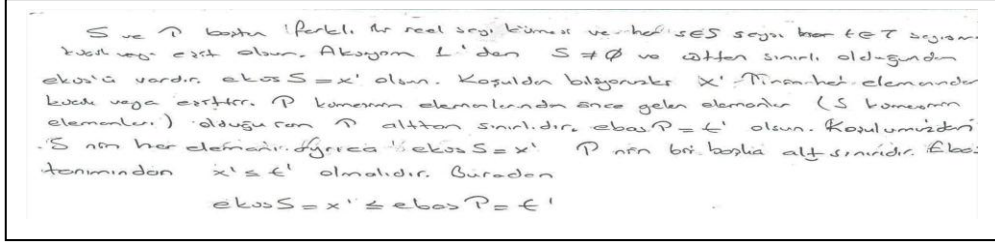 S ve T boştan farklı bir reel sayı kümesi ve her s∈S sayısı her t∈T sayısından
küçük veya eşit olsun. Aksiyom 1'den S ≠ ∅ ve üstten sınırlı olduğundan
ekus'ü vardır. ekus S = x' olsun. Koşuldan biliyoruz ki x' T'nin her elemanından
küçük veya eşittir. T kümesinin elemanlarından önce gelen elemanlar (S kümesinin
elemanları) olduğu için T alttan sınırlıdır. ebas T = t' olsun. Koşulumuzdan
S nin her elemanı. Ayrıca ekus S = x' T nin bir başka alt sınırıdır. Ebas
tanımından x' ≤ t' olmalıdır. Buradan
ekus S = x' ≤ ebas T = t'